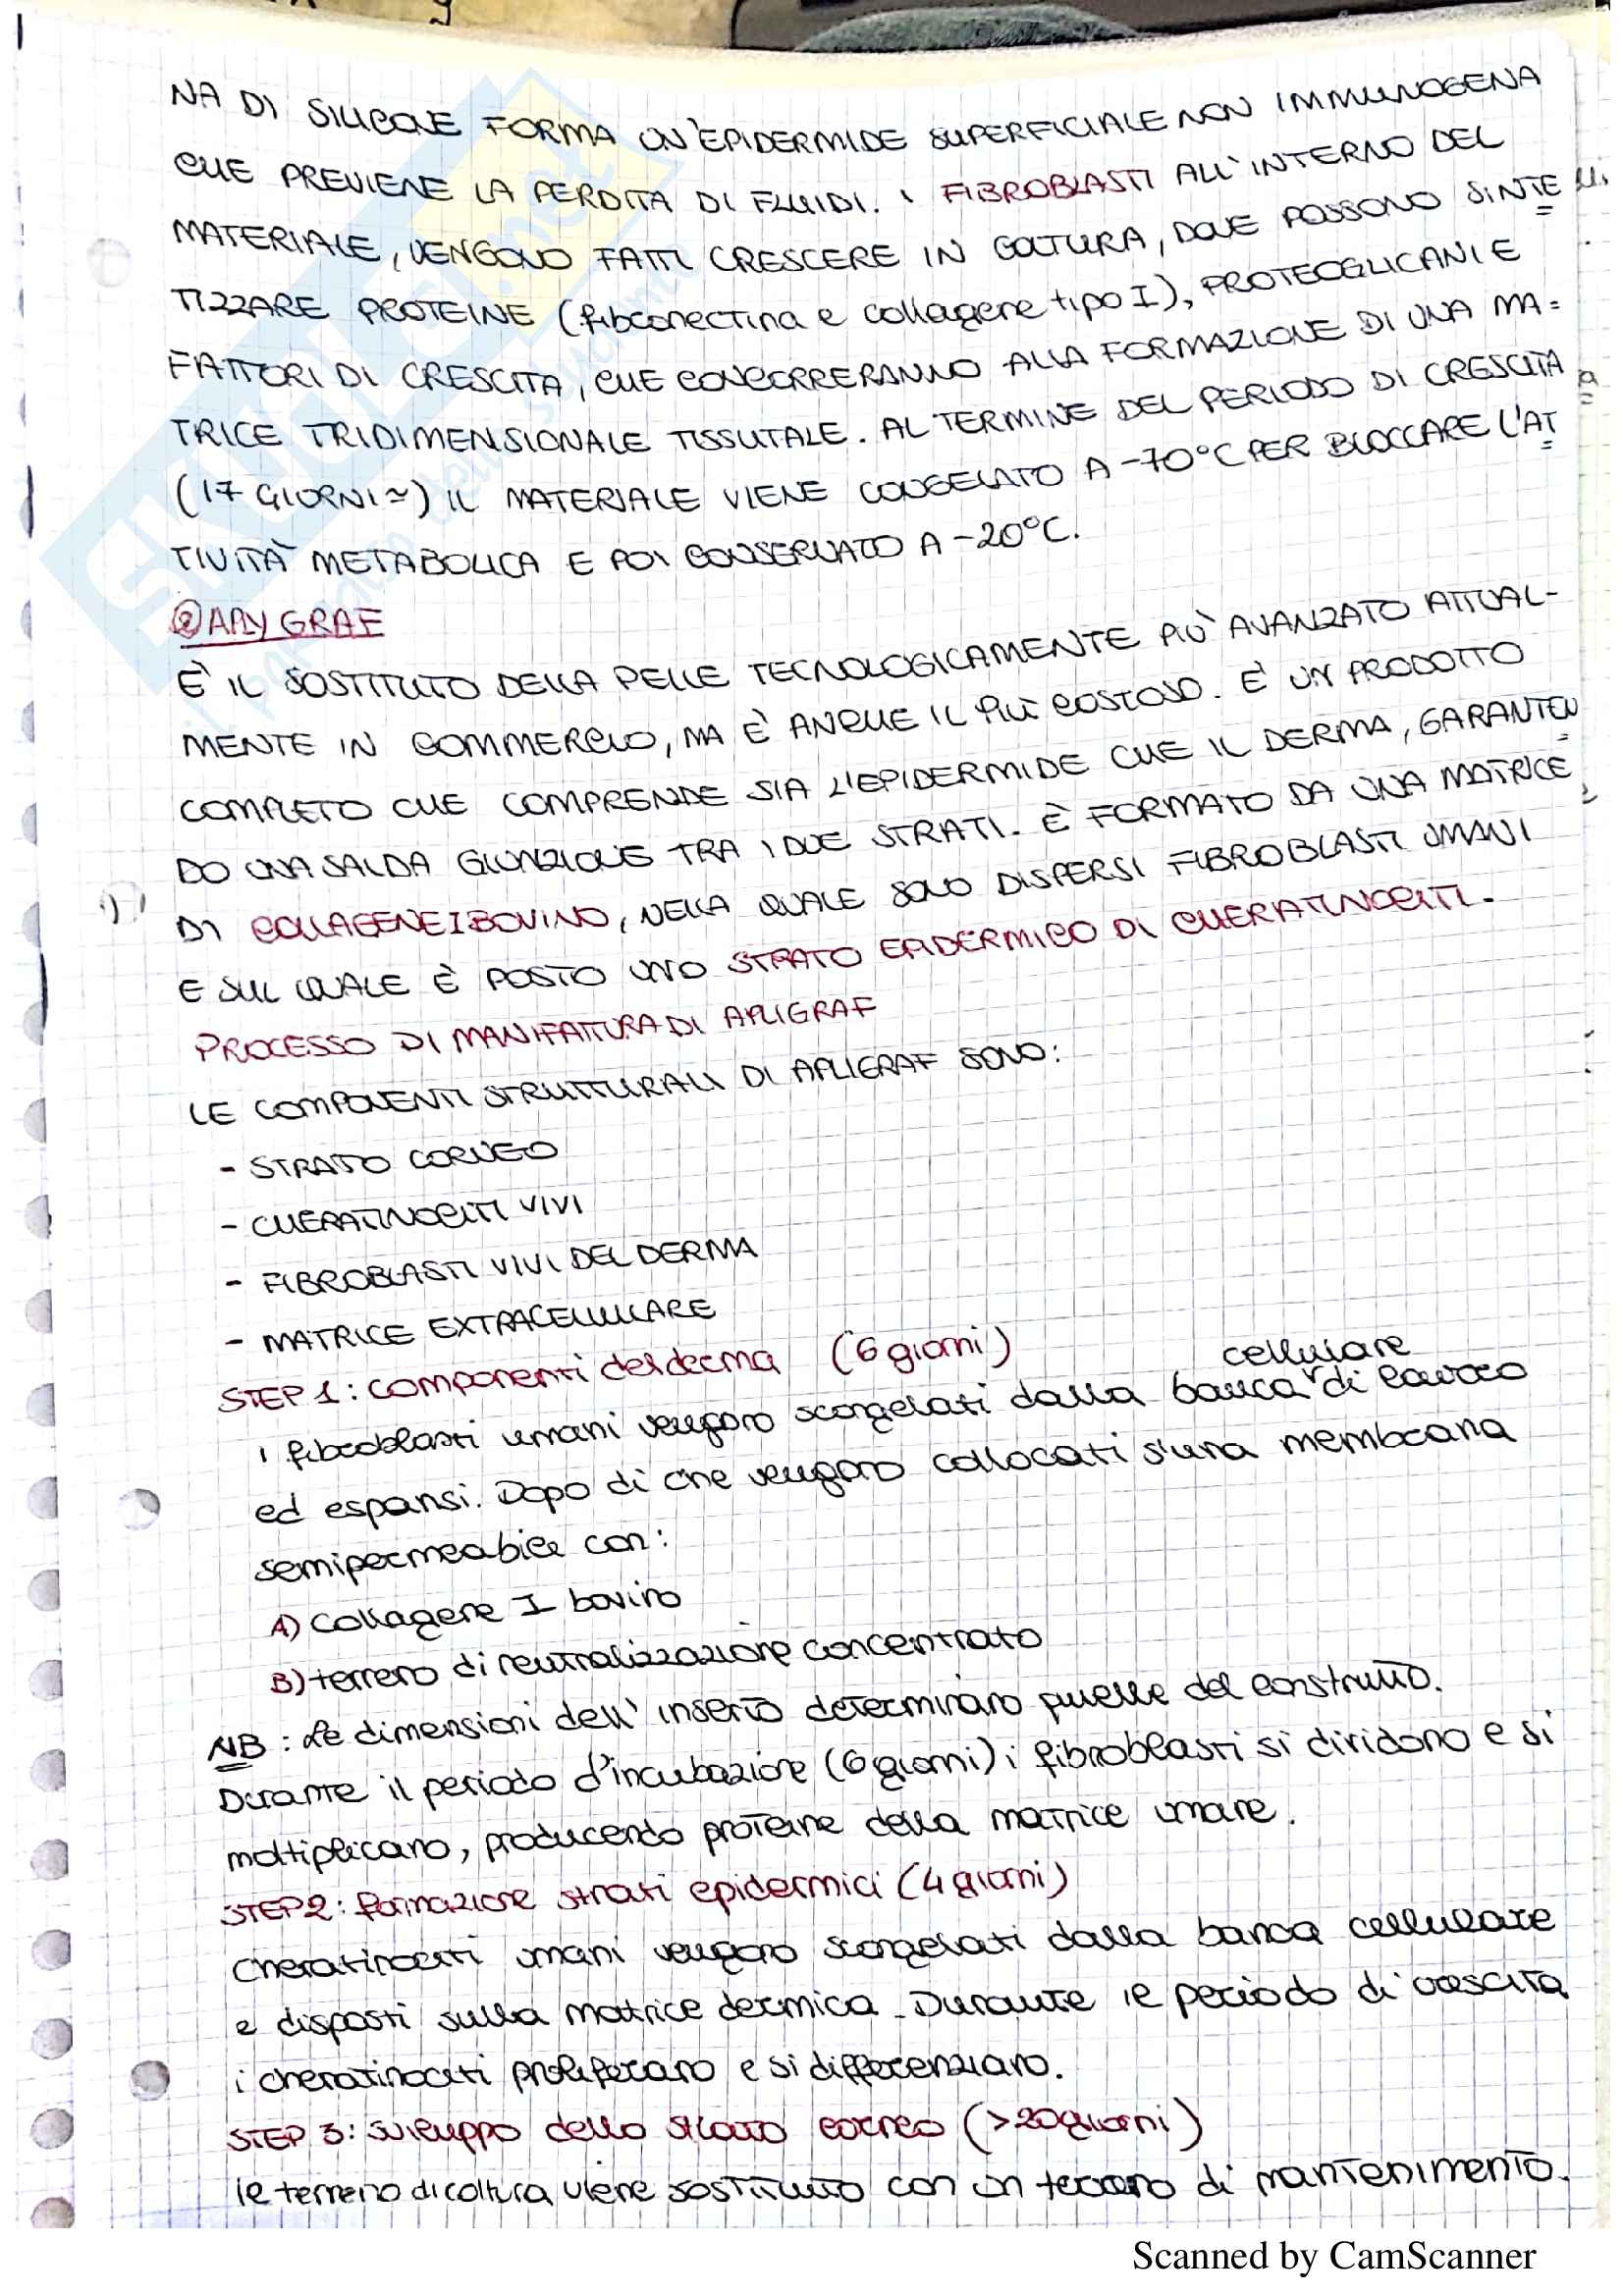 NA DI SILICONE FORMA UN'EPIDERMIDE SUPERFICIALE NON IMMUNOGENA
CHE PREVIENE LA PERDITA DI FLUIDI. I FIBROBLASTI ALL'INTERNO DEL
MATERIALE, VENGONO FATTI CRESCERE IN COLTURA, DOVE POSSONO SINTE=
TIZZARE PROTEINE (fibronectina e collagene tipo I), PROTEOGLICANI E
FATTORI DI CRESCITA, CHE CONCORRERANNO ALLA FORMAZIONE DI UNA MA=
TRICE TRIDIMENSIONALE TISSUTALE. AL TERMINE DEL PERIODO DI CRESCITA
(17 GIORNI ≃) IL MATERIALE VIENE CONGELATO A -70°C PER BLOCCARE L'AT=
TIVITÀ METABOLICA E POI CONSERVATO A -20°C.
② APLYGRAF
È IL SOSTITUTO DELLA PELLE TECNOLOGICAMENTE PIÙ AVANZATO ATTUAL-
MENTE IN COMMERCIO, MA È ANCHE IL PIÙ COSTOSO. È UN PRODOTTO
COMPLETO CHE COMPRENDE SIA L'EPIDERMIDE CHE IL DERMA, GARANTEN=
DO UNA SALDA GIUNZIONE TRA I DUE STRATI. È FORMATO DA UNA MATRICE
DI COLLAGENE I BOVINO, NELLA QUALE SONO DISPERSI FIBROBLASTI UMANI
E SUL QUALE È POSTO UNO STRATO EPIDERMICO DI CHERATINOCITI.
PROCESSO DI MANIFATTURA DI APLIGRAF
LE COMPONENTI STRUTTURALI DI APLIGRAF SONO:
- STRATO CORNEO
- CHERATINOCITI VIVI
- FIBROBLASTI VIVI DEL DERMA
- MATRICE EXTRACELLULARE
STEP 1: componenti del derma (6 giorni)
cellulare
I fibroblasti umani vengono scongelati dalla banca di lavoro
ed espansi. Dopo di che vengono collocati s'una membrana
semipermeabile con:
A) Collagene I bovino
B) terreno di neutralizzazione concentrato
NB: le dimensioni dell'inserto determinano quelle del construtto.
Durante il periodo d'incubazione (6 giorni) i fibroblasti si dividono e si
moltiplicano, producendo proteine della matrice umane.
STEP 2: formazione strati epidermici (4 giorni)
cheratinociti umani vengono scongelati dalla banca cellulare
e disposti sulla matrice dermica. Durante il periodo di crescita
i cheratinociti proliferano e si differenziano.
STEP 3: sviluppo dello strato corneo (>20 giorni)
il terreno di coltura viene sostituito con un terreno di mantenimento.
Scanned by CamScanner